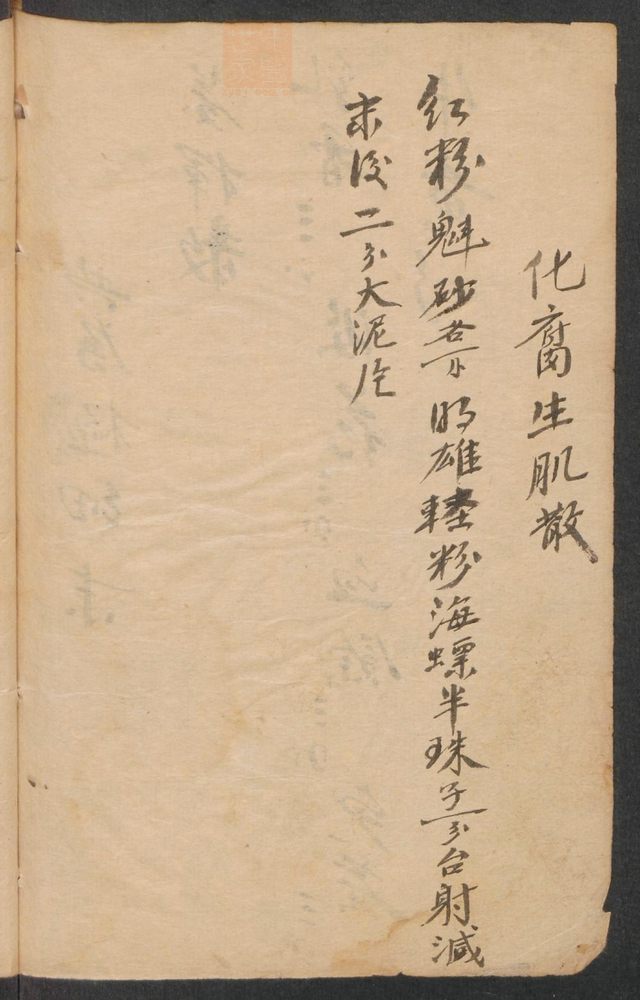 化腐生肌散
红粉魁砂各一分明雄軽粉海螵半珠子一分台射減
末後二分大泥片